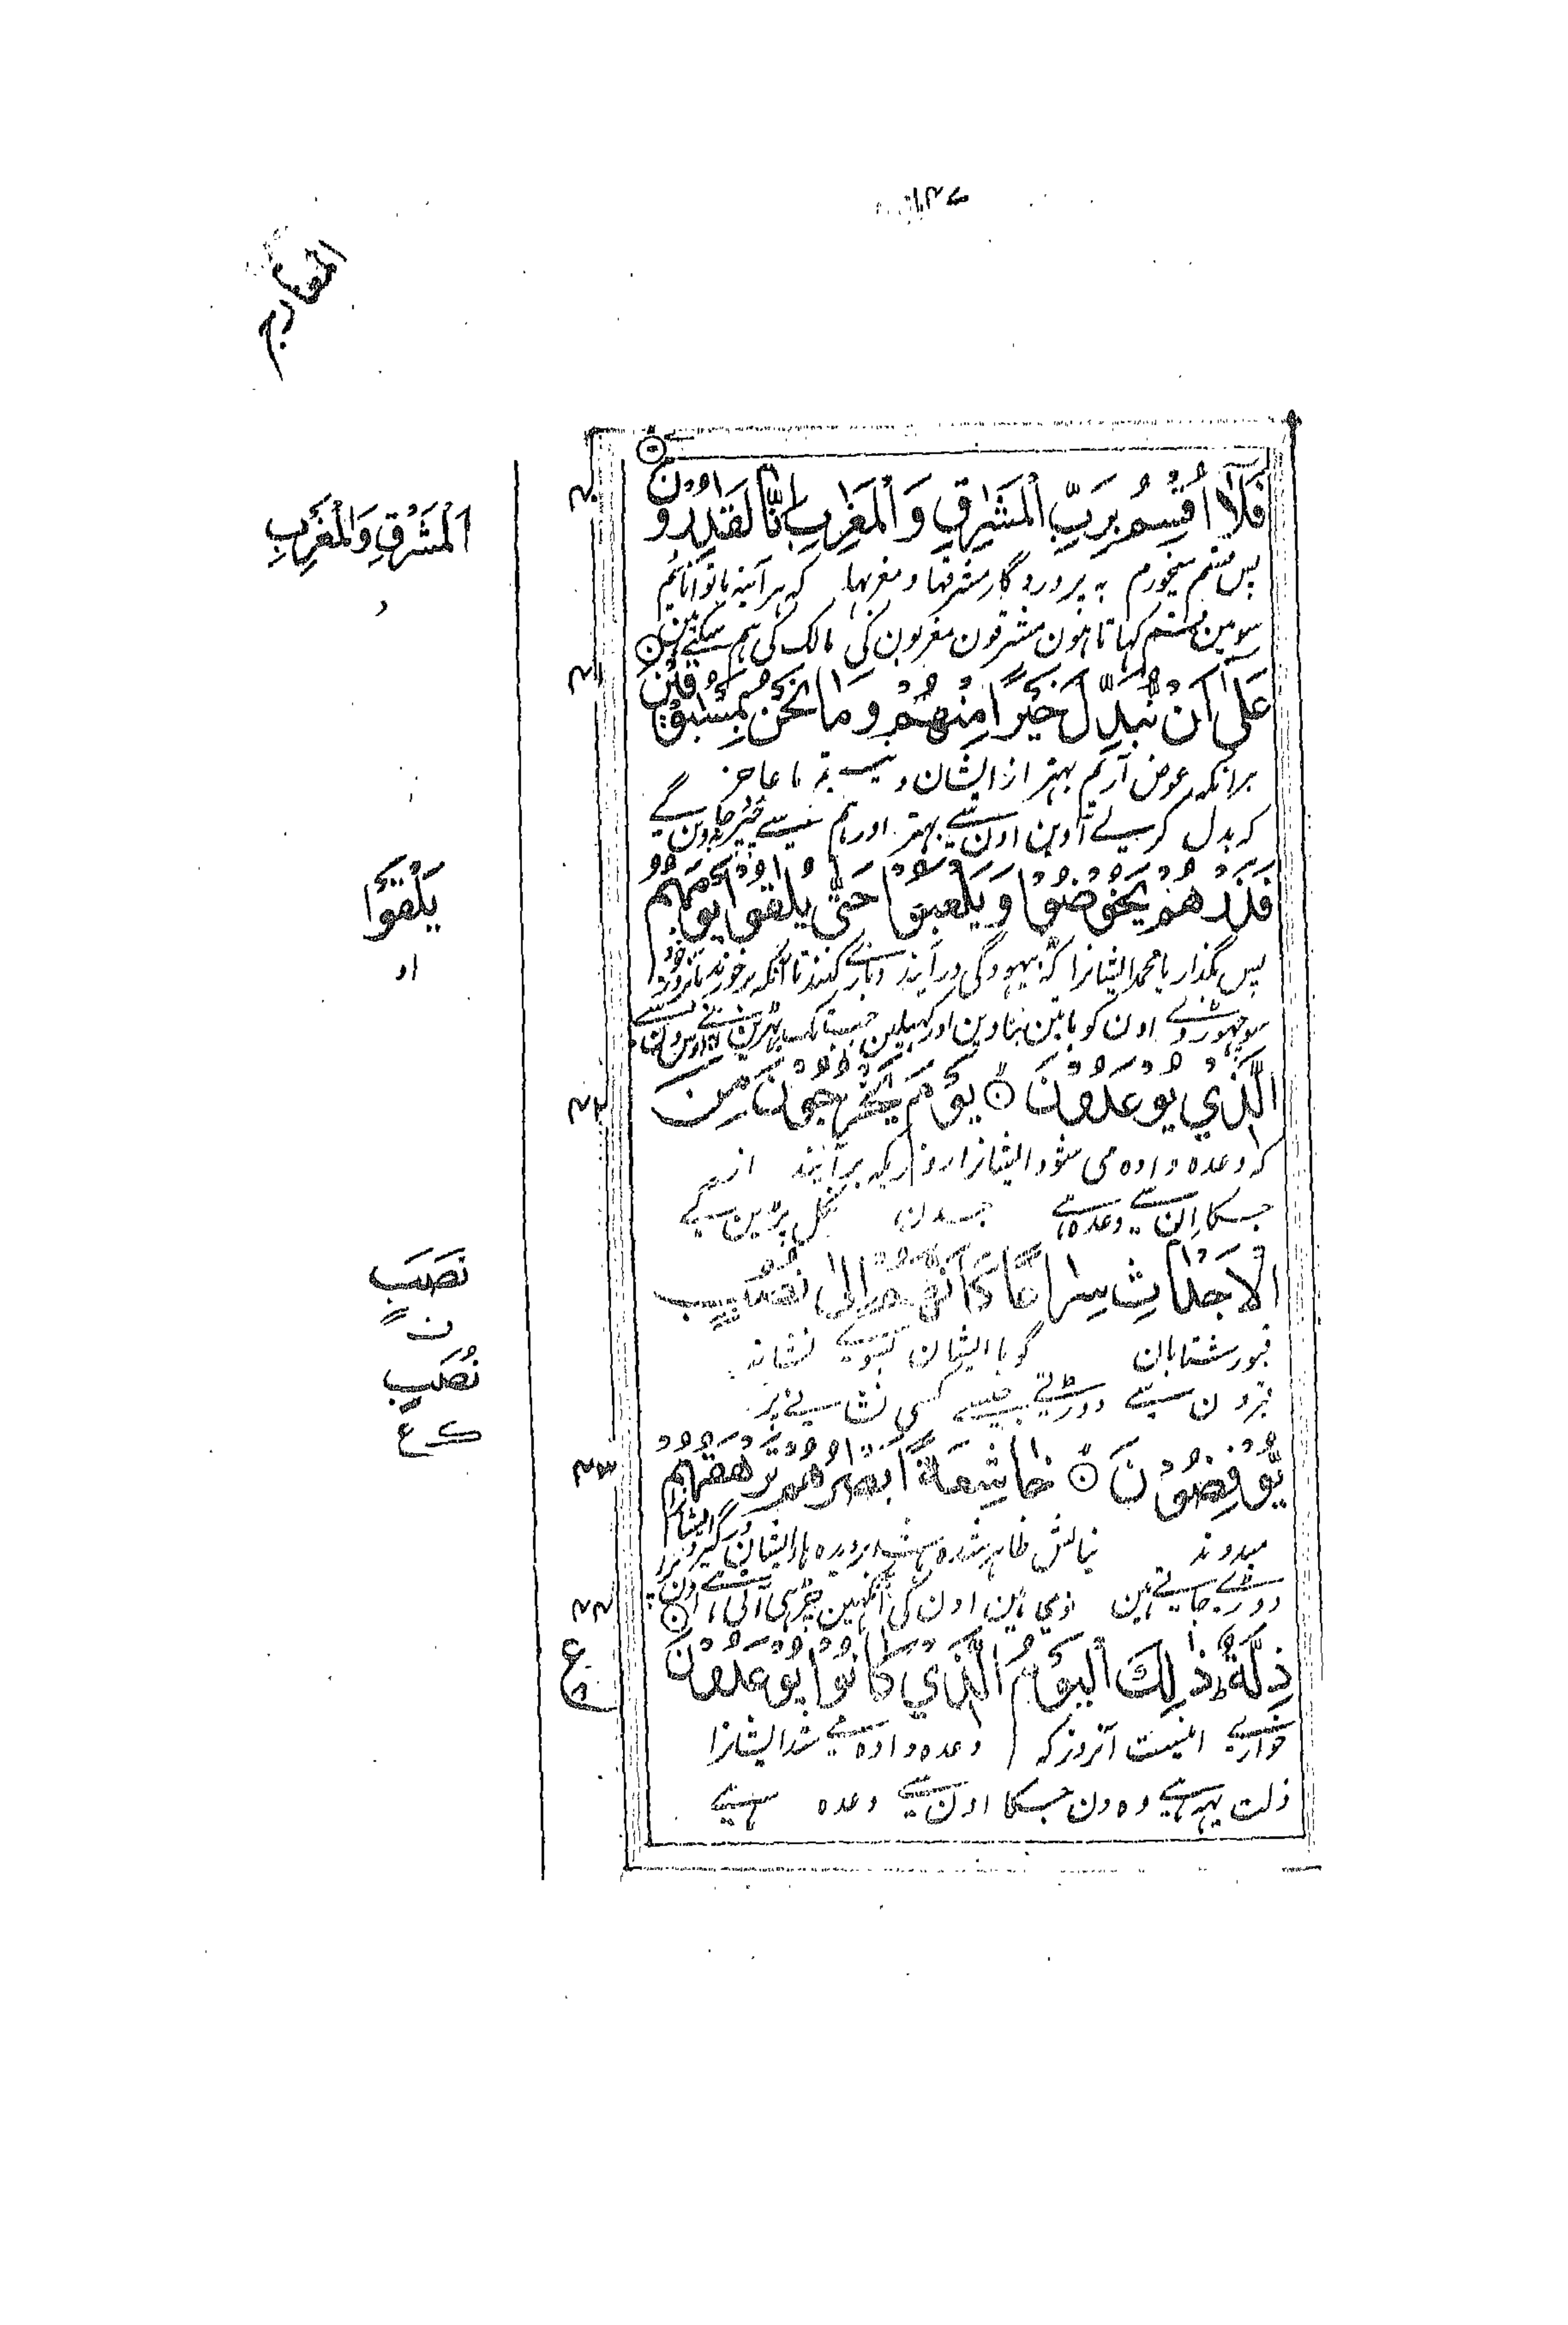 المعارج
فَلَآ اُقْسِمُ بِرَبِّ الْمَشٰرِقِ وَالْمَغٰرِبِ اِنَّا لَقٰدِرُوْنَ
پس قسم میخورم به پروردگار مشرقها و مغربها که هر آئینه ما توانائیم
سو مین قسم کہاتا ہون مشرقون مغربون کی مالک کی ہم سکتے ہین
عَلٰٓى اَنْ نُّبَدِّلَ خَيْرًا مِّنْهُمْ وَمَا نَحْنُ بِمَسْبُوْقِيْنَ
برانکه عوض آریم بہتر از ایشان و نیستیم ما عاجز
کہ بدل کر لے آوین اون سے بہتر اور ہم سے
فَذَرْهُمْ يَخُوْضُوْا وَيَلْعَبُوْا حَتّٰى يُلٰقُوْا يَوْمَهُمُ
پس بگذار یا محمد ایشانرا که بیہودگی در آیند و بازے کنند تا آنکه برخورند بآنروز خود
سو چہوڑ دے اون کو باتین بناوین اور کہیلین جب تک
الَّذِيْ يُوْعَدُوْنَ ۝ يَوْمَ يَخْرُجُوْنَ مِنَ
که وعده داده می شود ایشانرا روزیکه برآیند از
جسکا ان سے وعدہ ہے جسدن نکل پڑین سے
الْاَجْدَاثِ سِرَاعًا كَاَنَّهُمْ اِلٰى نُصُبٍ
قبور شتابان گویا ایشان بسوے نشانه
قبرون سے دوڑتے جیسے کسی نشانے پر
يُّوْفِضُوْنَ ۝ خَاشِعَةً اَبْصٰرُهُمْ تَرْهَقُهُمْ
میدوند
دوڑے جاتے ہین اون کی آنکہین چڑہی آتی ہے اون پر
ذِلَّةٌ ذٰلِكَ الْيَوْمُ الَّذِيْ كَانُوْا يُوْعَدُوْنَ
خوارے اینست آنروز که وعده داده مے شد ایشانرا
ذلت یہہ ہے وہ دن جسکا اون سے وعدہ ہے
اَلْمَشْرِقِ وَالْمَغْرِبِ
يَلْقَوْا
او
نَصَبٍ
ن
نُصُبٍ
ک ع
۴۰
۴۱
۴۲
۴۳
۴۴
ع